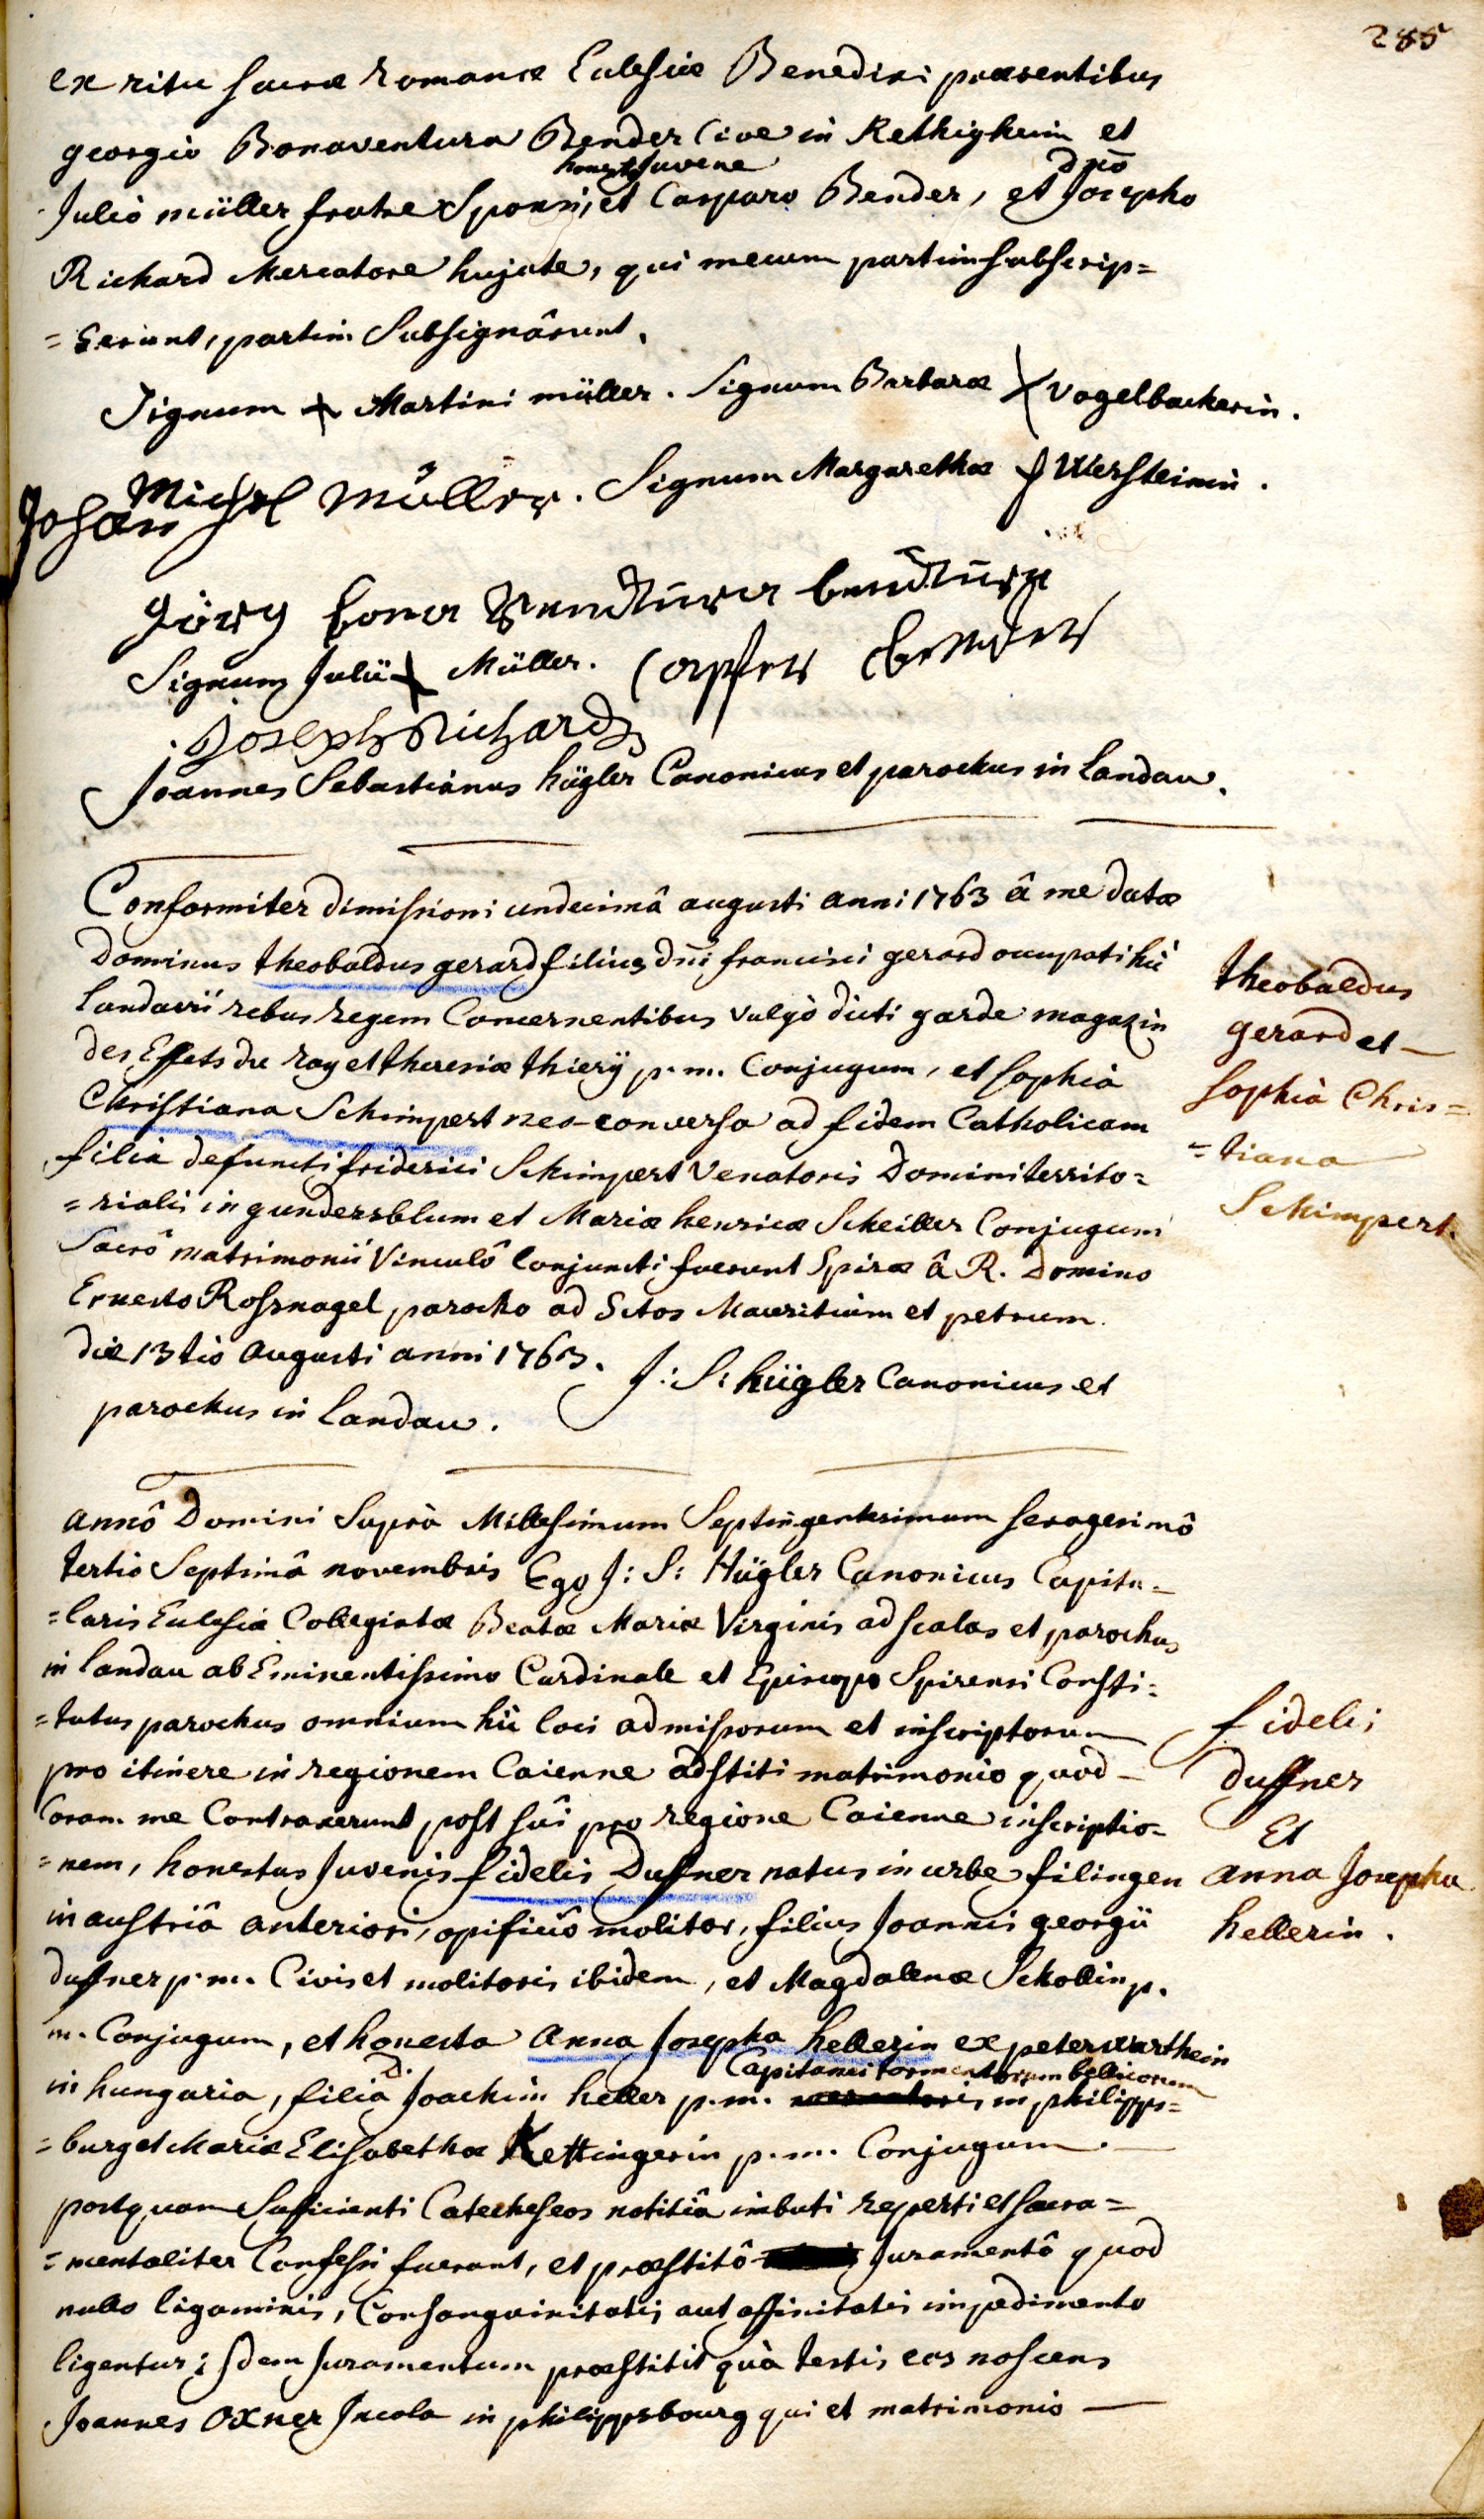 285
ex ritu sacræ romanæ Eclesiæ Benedixi præsentibus
georgio Bonaventura Bender Cive in Rethigheim et
honesto Juvene dno
Julio müller fratre Sponsi, et Casparo Bender, et Josepho
Richard Mercatore hujate, qui mecum partim subscrip=
=serunt, partim Subsignârunt.
Signum + Martini müller. Signum Barbaræ X Vogelbackerin.
Johan Michel Müller. Signum Margarethæ
Görg bona
Signum Julii + Müller. Casper bender
Joseph Richard
Joannes Sebastianus hügler Canonicus et parochus in Landau.
Conformiter dimissioni undecimâ augusti anni 1763 â me datæ
Dominus theobaldus gerard filius dni francisci gerard occupati hic
Landavii rebus regem Concernentibus vulgò dicti garde magazin
des Effets du roy et theresiæ thierÿ p. m. Conjugum, et sophia
Christiana Schimpert neo-conversa ad fidem Catholicam
filia defuncti friderici Schimpert Venatoris Domini territo=
=rialis in gundersblum et Mariæ henricæ Scheiller Conjugum
Sacrô matrimonii Vinculô Conjuncti fuerunt Spiræ â R. Domino
Ernesto Rossnagel parocho ad Sctos Mauritium et petrum.
die 13tio Augusti anni 1763. J: S: hügler Canonicus et
parochus in Landau.
theobaldus
gerard et
sophia Chris=
=tiana
Schimpert.
annô Domini Suprà Millesimum Septingentesimum sexagesimô
tertio Septimâ novembris Ego J: S: Hügler Canonicus Capitu=
=laris Eclesiæ Collegiatæ Beatæ Mariæ Virginis ad scalas et parochus
in Landau ab Eminentissimo Cardinale et Episcopo Spirensi Consti=
=tutus parochus omnium hic loci admissorum et inscriptorum
pro itinere in regionem Caienne adstiti matrimonio quod
Coram me Contraxerunt post sui pro regione Caienne inscriptio=
=nem, honestus Juvenis fidelis Duffner natus in urbe filingen
in austriâ anteriori, opificiô molitor, filius Joannis georgii
duffner p. m. Civis et molitoris ibidem, et Magdalenæ Schollin p.
m. Conjugum, et honesta Anna Josepha hellerin ex peterwarthein
Capitanei tormentorum bellicorum
in hungaria, filia D. Joachim heller p. m. in philipps=
=burg et Mariæ Elisabethæ Kettingerin p. m. Conjugum.
postquam Sufficienti Catecheseos notitiâ imbuti reperti et sacra=
=mentaliter Confessi fuerant, et præstitô Juramentô quod
nullo ligaminis, Consanguinitatis aut affinitatis impedimento
ligentur; idem juramentum præstitit quà testis eos noscens
Joannes Oxner Incola in philippsbourg qui et matrimonio
fidelis
Duffner
Et
anna Josepha
hellerin.